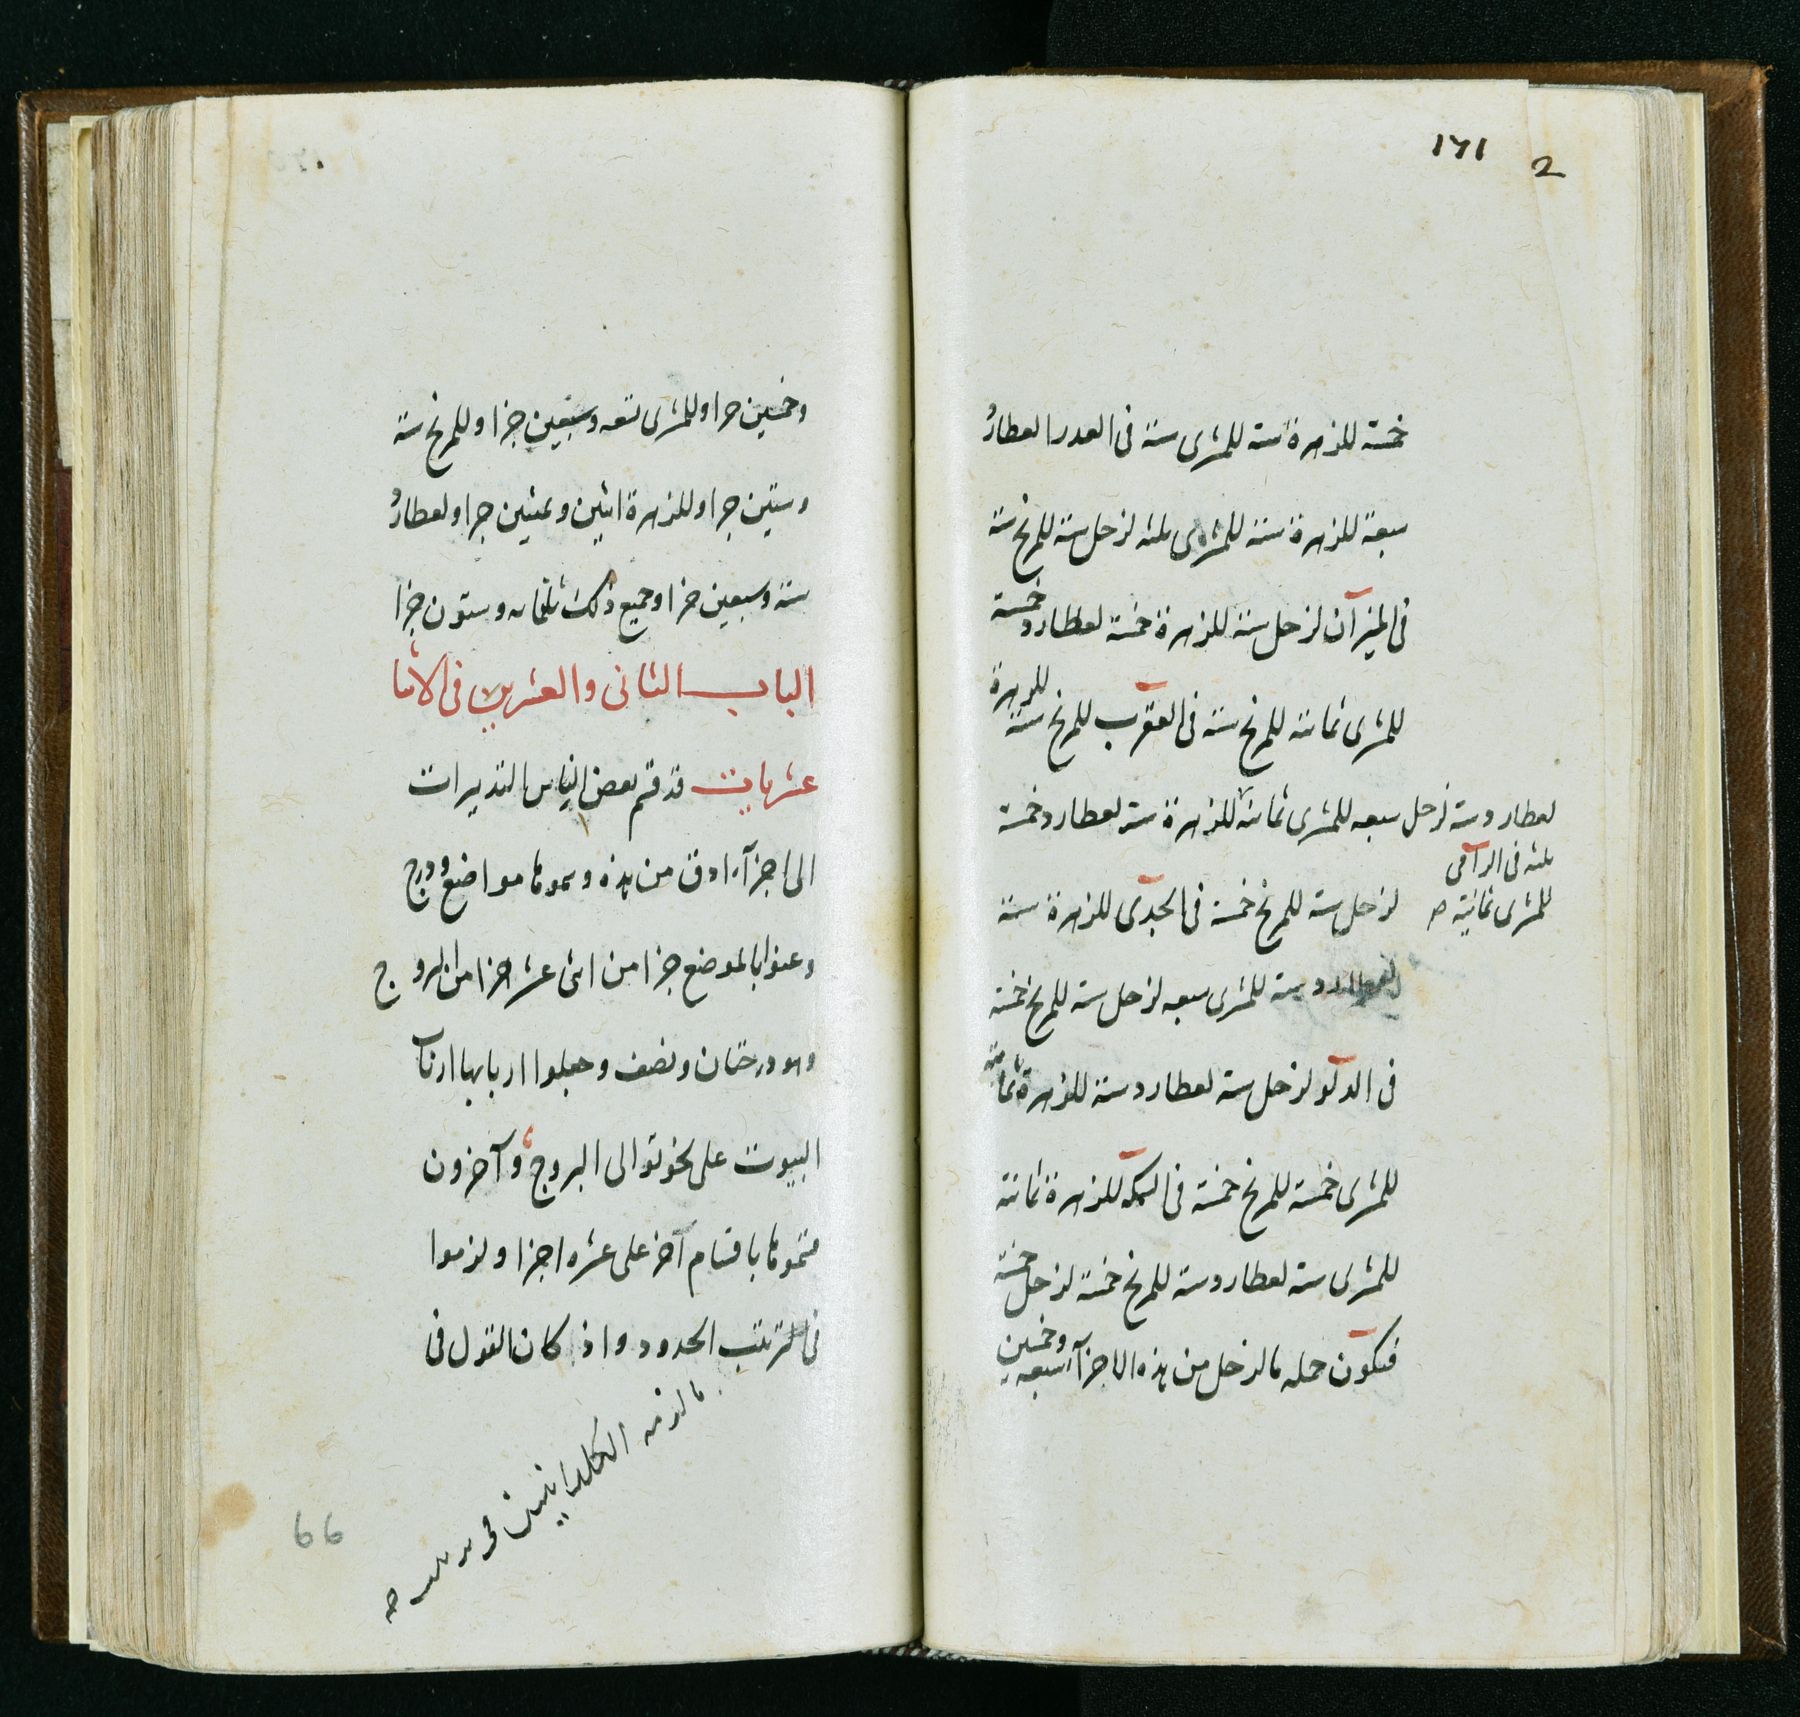 ١٢١
2
خمسة للزهرة ستة للمشرى ستة فى العدرا لعطارد
سبعة للزهرة ستة للمشرى ثلثه لزحل ستة للمريخ ستة
فى الميزان لزحل ستة للزهرة خمسة لعطارد خمسة
للمشرى ثمانية للمريخ ستة فى العقرب للمريخ ستة للزهرة
سبعه للمشرى ثمانية للزهرة ستة لعطارد خمسة
لعطارد ستة لزحل
ثلثه فى الرامى
للمشرى ثمانية صح
لزحل ستة للمريخ خمسة فى الجدى للزهرة ستة
لعطارد ستة للمشرى سبعه لزحل ستة للمريخ خمسة
فى الدلو لزحل ستة لعطارد ستة للزهرة ثمانية
للمشرى خمسة للمريخ خمسة فى السمكة للزهرة ثمانية
للمشرى ستة لعطارد ستة للمريخ خمسة لزحل خمسة
فيكون جمله ما لزحل من هذه الاجزآء سبعه وخمسين
وخمسين جزا وللمشرى تسعه وسبعين جزا وللمريخ ستة
وستين جزا وللزهرة اثنين وثمنين جزا ولعطارد
ستة وسبعين جزا وجميع ذلك ثلثمايه وستون جزا
الباب الثانى والعشرين فى الاثنا
عشريات قد قسم بعض الناس التدبيرات
الى اجزآء ادق من هذه وسموها مواضع ودرج
وعنوا بالموضع جزا من اثنى عشر جزا من البروج
وهو درجتان ونصف وجعلوا اربابها ارباب
البيوت على نحو توالى البروج وآخرون
قسموها باقسام آخر على عشره اجزا ولزموا
فى الترتيب الحدود واذ كان القول فى
ما لزمه الكلدانيين فى
66